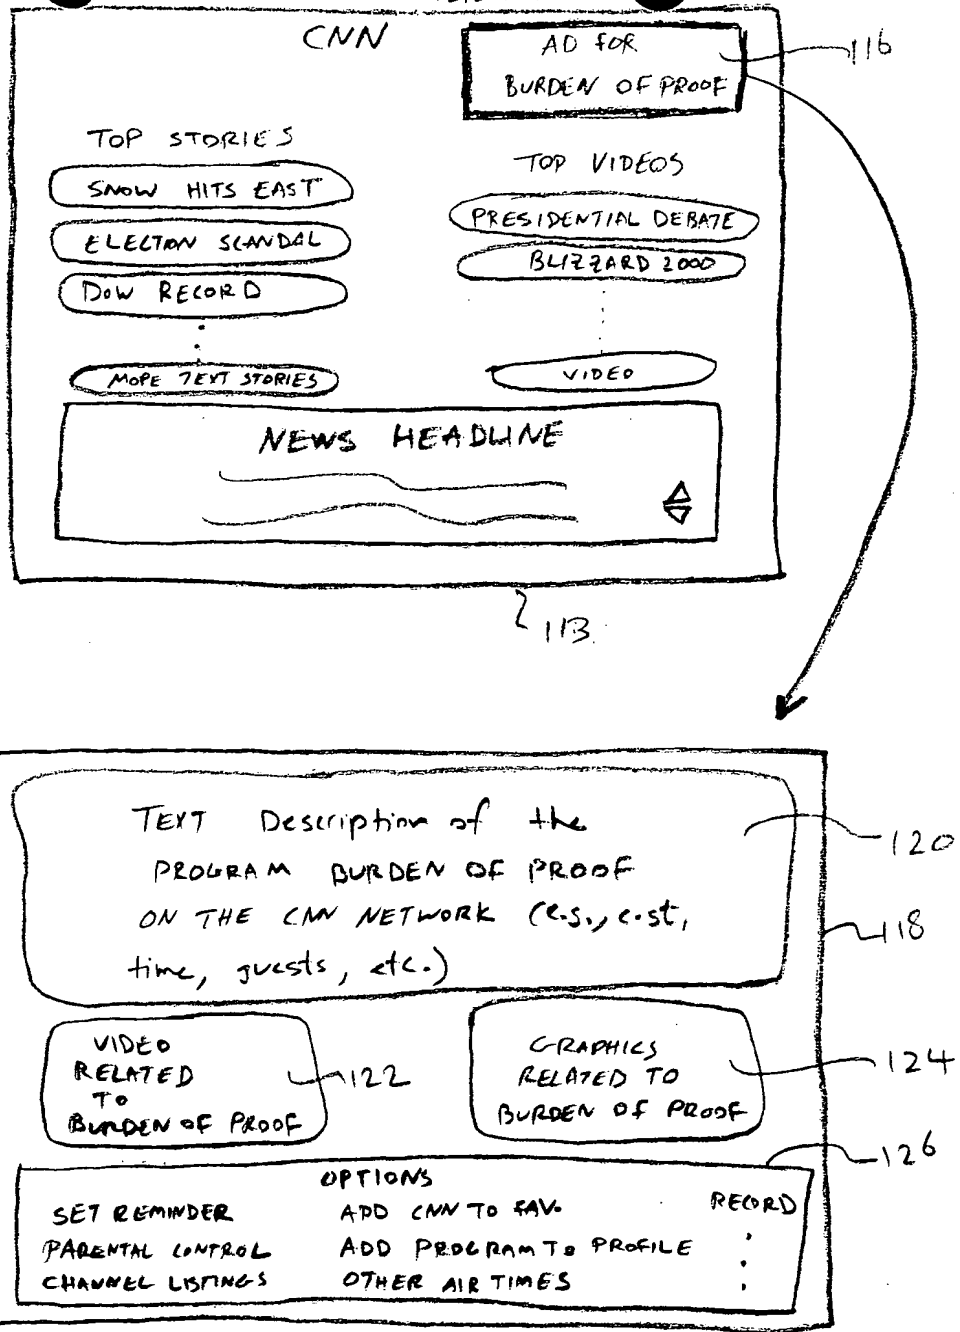 CNN
AD FOR
BURDEN OF PROOF
116
TOP STORIES
SNOW HITS EAST
ELECTION SCANDAL
DOW RECORD
MORE TEXT STORIES
TOP VIDEOS
PRESIDENTIAL DEBATE
BLIZZARD 2000
VIDEO
NEWS HEADLINE
113
TEXT Description of the
PROGRAM BURDEN OF PROOF
ON THE CNN NETWORK (e.g., cast,
time, guests, etc.)
120
118
VIDEO
RELATED
TO
BURDEN OF PROOF
122
GRAPHICS
RELATED TO
BURDEN OF PROOF
124
126
OPTIONS
SET REMINDER ADD CNN TO FAV. RECORD
PARENTAL CONTROL ADD PROGRAM TO PROFILE
CHANNEL LISTINGS OTHER AIR TIMES